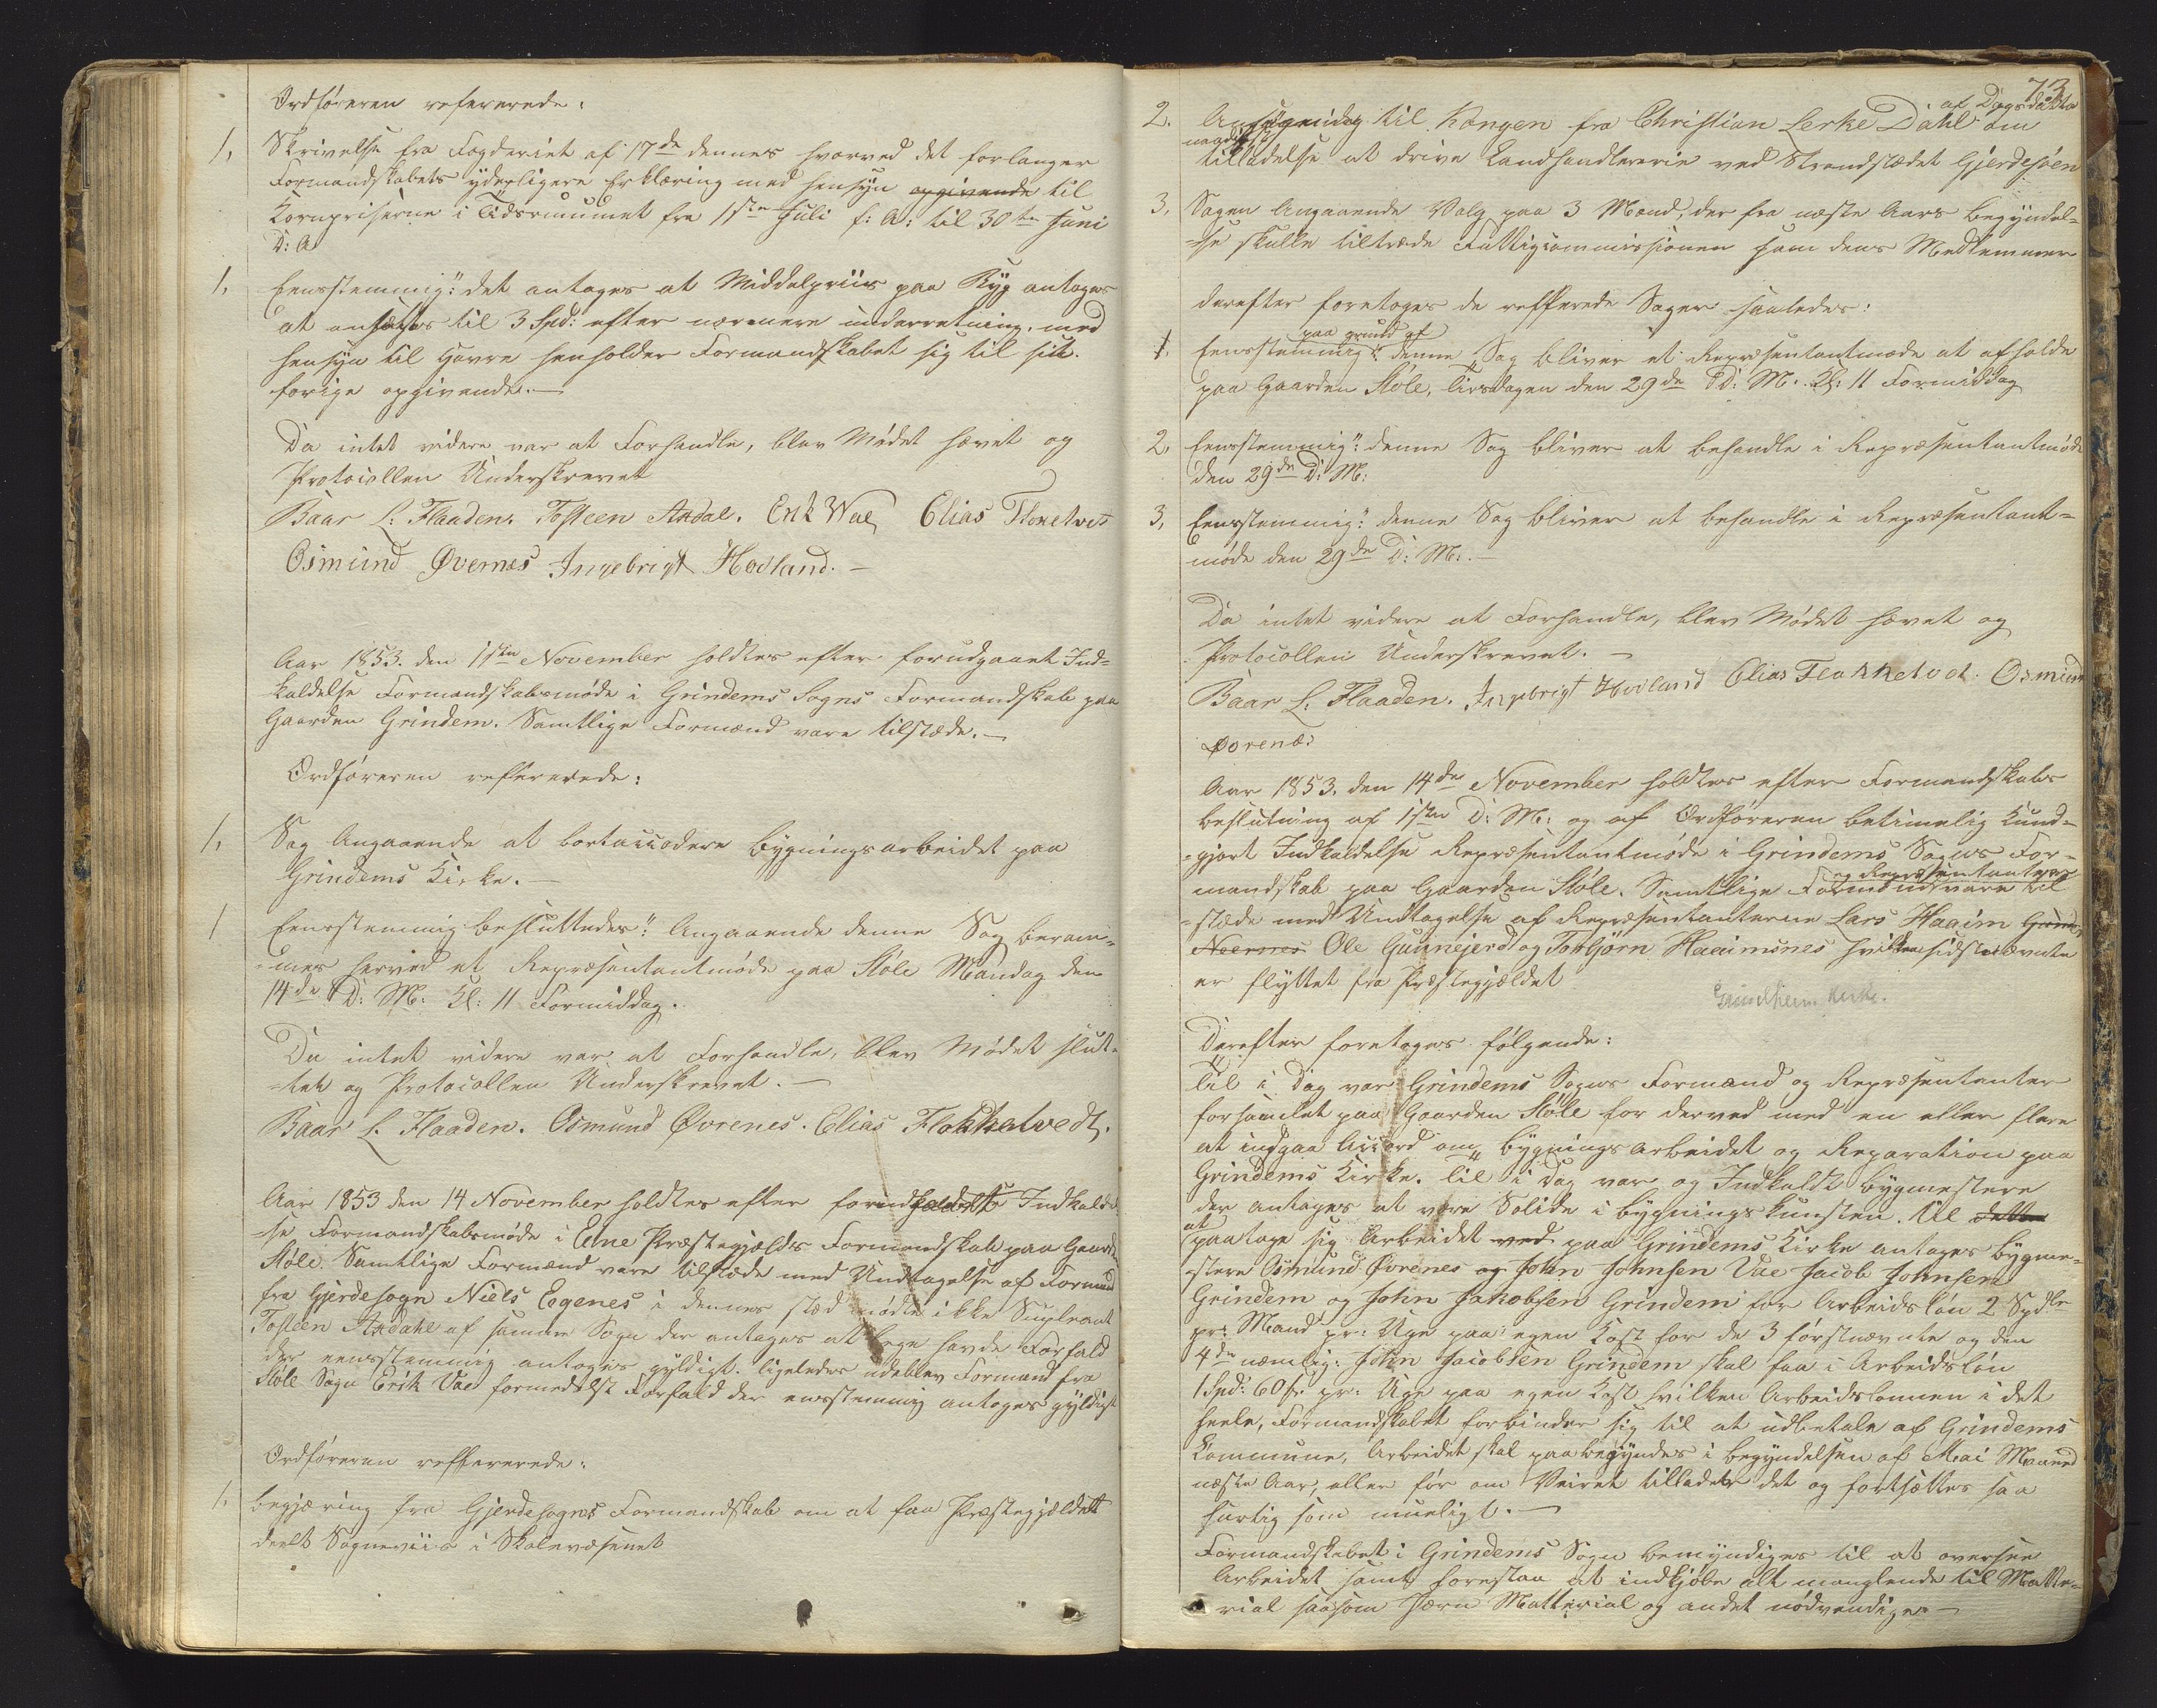 Ordføreren refererede:
1, Skrivelse fra Fogderiet af 17de dennes hvorved det forlanger
Formandskabets yderligere Erklæring med hensyn opgivende til
Kornpriserne i Tidsrummet fra 1ste Juli f: A: til 30te Juni
D: A
1, Eensstemmig: det antages at Middelpriis paa Byg antages
at ansættes til 3 Spd: efter nærmere underretning, med
hensyn til Havre henholder Formandskabet sig til sit
forige opgivende. —
Da intet videre var at Forhandle, blev Mødet hævet og
Protocollen Underskrevet
Baar L: Flaaden. Tosteen Axdal. Erik Wae Elias Floketvet
Osmund Øvernes Ingebrigt Hovland. —
Aar 1853. den 1ste November holdtes efter forudgaaet Ind=
kaldelse Formandskabsmøde i Grindems Sogns Formandskab paa
Gaarden Grindem. Samtlige Formænd vare tilstæde. —
Ordføreren refererede:
1, Sag Angaaende at bortaccodere bygningsarbeidet paa
Grindems Kirke. —
1 Eensstemmig besluttedes: Angaaende denne Sag beram=
=mes herved et Repræsentantmøde paa Støle Mandag den
14de D: M: Kl: 11 Formiddag.
Da intet videre var at Forhandle, blev Mødet slut=
=tet og Protocollen Underskrevet. —
Baar L. Flaaden. Osmund Øvrenes. Elias Flokketvedt.
Aar 1853 den 14 November holdtes efter Indkaldel
=se Formandskabsmøde i Etne Præstegjælds Formandskab paa Gaarden
Støle. Samtlige Formænd vare tilstæde med Undtagelse af Formand
fra Gjerdesogn Niels Egenes i dennes sted mødte ikke Supleant
Tosteen Axdahl af samme Sogn der antages at have Forfald
der eensstemmig antages gyldigt. ligeledes udeblev Formand fra
Støle Sogn Erik Vae formedelst Forfald der eensstemmig antages gyldigt
Ordføreren reffererede:
1, begjæring fra Gjerdesogns Formandskab om at faa Præstegjældet
deelt Sogneviis i Skolevæsenet
73
2. Ansøgning til Kongen fra Christian Lerke Dahl af Dags dato om
naadigst
tilladelse at drive Landhandlererie ved Strandstædet Gjerdesøen
3, Sagen Angaaende Valg paa 3 Mænd, der fra næste Aars begyndel=
=se skulle tiltræde Fattigcommissionen som dens Medlemmer
derefter foretoges de refferede Sager saaledes:
1. Eensstemmig: paa grund af denne Sag bliver et Repræsentantmøde at afholde
paa Gaarden Støle, Tirsdagen den 29de D: M: Kl: 11 Formiddag
2, Eensstemmig: denne Sag bliver at behandle i Repræsentantmøde
den 29de D: M:
3, Eensstemmig: denne Sag bliver at behandle i Repræsentant=
møde den 29de D: M: —
Da intet videre at Forhandle, blev Mødet hævet og
Protocollen Underskrevet. —
Baar L. Flaaden. Ingebrigt Hovland Elias Flokketvet. Osmund
Øvrenes
Aar 1853. den 14de November holdtes efter Formandskabs
beslutning af 1ste D: M: og af Ordføreren betimelig Kund=
=gjort Indkaldelse Repræsentantmøde i Grindems Sogns For=
mandskab paa Gaarden Støle. Samtlige Formænd og Repræsentanter vare til
=stæde med Undtagelse af Repræsentanterne Lars Haaim
Ole Gunnejerd og Torbjørn Haaimsnes hvilken sidstnævnte
er flyttet fra Præstegjældet
Grindheim Kirke.
Derefter foretoges følgende:
Til i Dag var Grindems Sogns Formænd og Repræsentanter
forsamlet paa Gaarden Støle for derved med en eller flere
at indgaa Accord om bygningsarbeidet og Reparation paa
Grindems Kirke. til i Dag var og Indkaldt bygmestere
der antages at være Solide i bygningskunsten. til dette
at paatage sig Arbeidet ved paa Grindems Kirke antages bygme=
=stere Osmund Øvrenes og John Johnsen Vae Jacob Johnsen
Grindem og John Jakobsen Grindem for Arbeidsløn 2 Spdlr
pr: Mand pr: Uge paa egen Kost for de 3 førstnævnte og den
4de nemlig: John Jacobsen Grindem skal faa i Arbeidsløn
1 Spd: 60 s pr: Uge paa egen Kost hvilken Arbeidslønnen i det
heele, Formandskabet forbinder sig til at udbetale af Grindems
Kommune, Arbeidet skal paabegyndes i begyndelsen af Mai Maaned
næste Aar, eller før om Veiret tillader det og fortsættes saa
hurtig som mueligt. —
Formandskabet i Grindems Sogn bemyndiges til at oversee
Arbeidet samt forestaa at indkjøbe alt manglende til Matte=
rial saasom Jærn Matterial og andet nødvendige. —